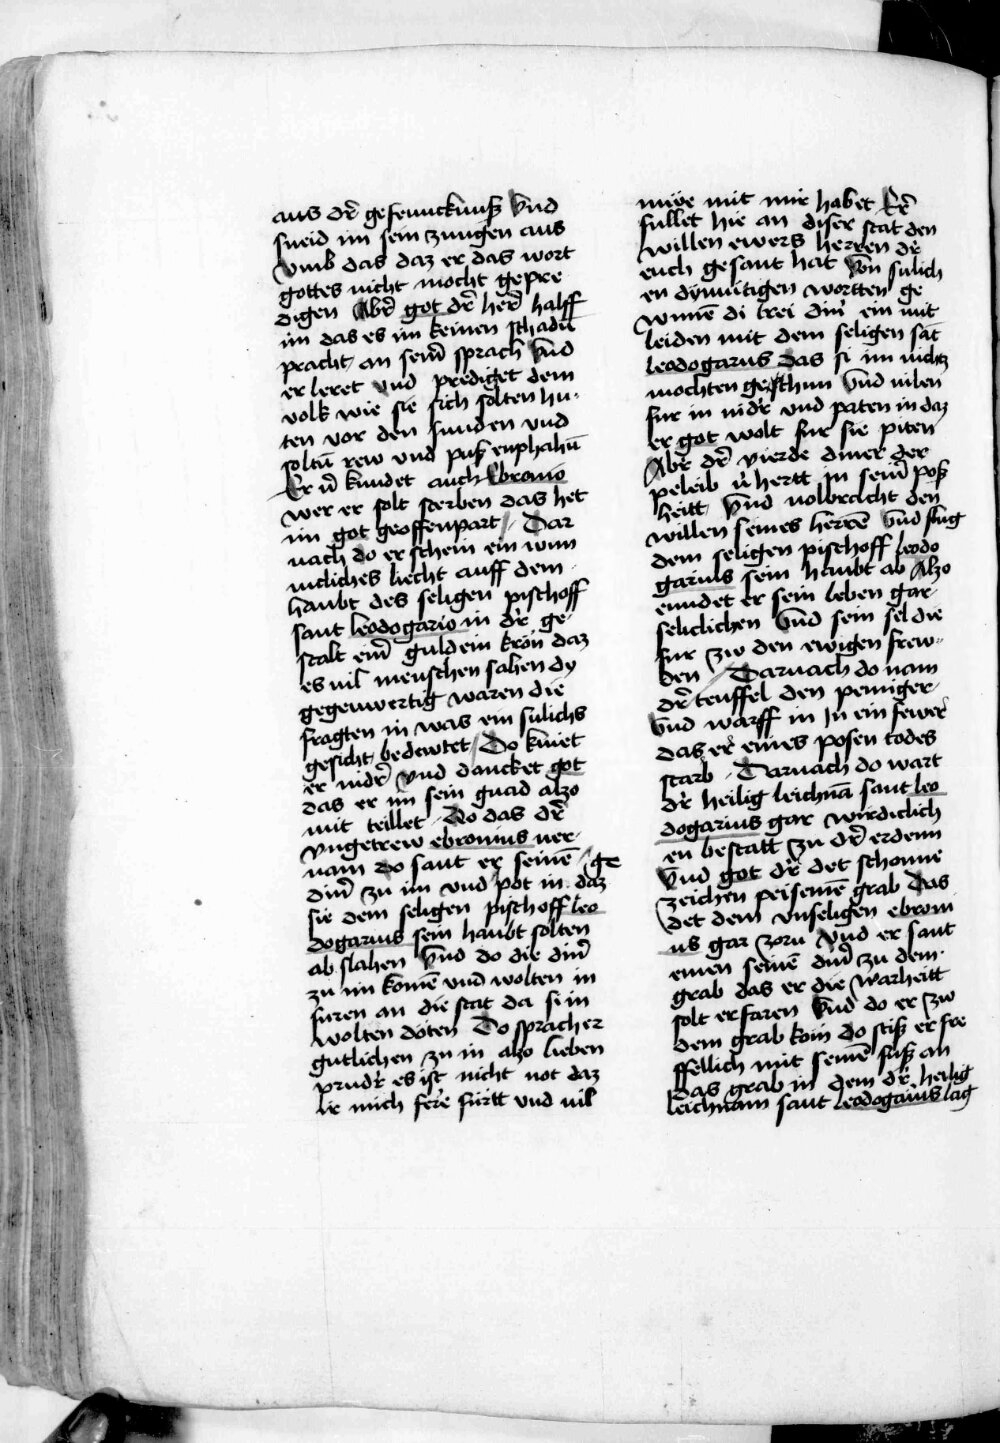 aus dr̄ gefenncknuß Vnd
sneid im sein zungen aus
Vmb das daz er das wort
gottes nicht mocht gepre
digen Abr̄ got dr̄ her̄ halff
im das es im keinen schadn̄
pracht an seīn sprach Vnd
er leret vnd prediget dem
volk wie sie sich solten hu-
ten vor den sunden vnd
soltn̄ rew vnd puß enphahn̄
Er v̄ kundet auch Ebronio
wer er solt sterben das het
im got geoffenpart / Dar
nach do er schein ein wun
nicliches liecht auff dem
haubt des seligen pischoff
sant leodogario in dr̄ ge-
stalt eīn guldein kron daz
es vil menschen sahen dy
gegenwertig waren die
fragten in was ein sulichs
gesicht bedewtet / Do kniet
er nidr̄ vnd dancket got
das er im sein gnad alzo
mit teillet Do das dr̄
vngetrew ebronius ver-
nam do sant er seinē / ge
din̄ zu im vnd pot in daz
sie dem seligen pischoff leo
dogarius sein haubt solten
ab slahen Vnd do die din̄
zu im komē vnd wolten in
furen an die stat da si in
wolten doten Do sprach er
gutlichen zu in alzo lieben
prudr̄ es ist nicht not daz
ir mich ferr̄e fürtt vnd vil
müe mit mir habet Er̄
fullet hie an diser stat den
willen ewers herren dr̄
euch gesant hat Von sulich
en dymutigen wortten ge
wunē di trei din̄ ein mit
leiden mit dem seligen sāt
leodogarius das si im nichtz
mochten gesthun Vnd vilen
fur in nidr̄ vnd paten in daz
er got wolt fur sie piten
Abr̄ dr̄ vierde diner der
peleib v̄hertt in seīn poß
heitt Vnd volbracht den
willen seines herrē Vnd slug
dem seligen pischoff leodo
garius sein haubt ab Alzo
enndet er sein leben gar-
seliclichen Vnd sein sel die
fur zw den ewigen frew-
den / Darnach do nam
dr̄ teuffel den peiniger
Vnd warff in in ein fewer̄
das er̄ eines posen todes
starb Darnach do wart
dr̄ heilig leichnā sant leo
dogarius gar wirdiclich
en bestatt zu dr̄ erdenn
Vnd got dr̄ det schonne
zeichen pei seinē grab Das
det dem vnseligen ebroni
us gar zorn Vnd er sant
einen seinē din̄ zu dem
grab das er die warheitt
solt erfaren Vnd do er zw
dem grab kom do stiß er fre
ffellich mit seinē fuß an
das grab in dem dr̄ heilig
leichnam sant leodogarius lag